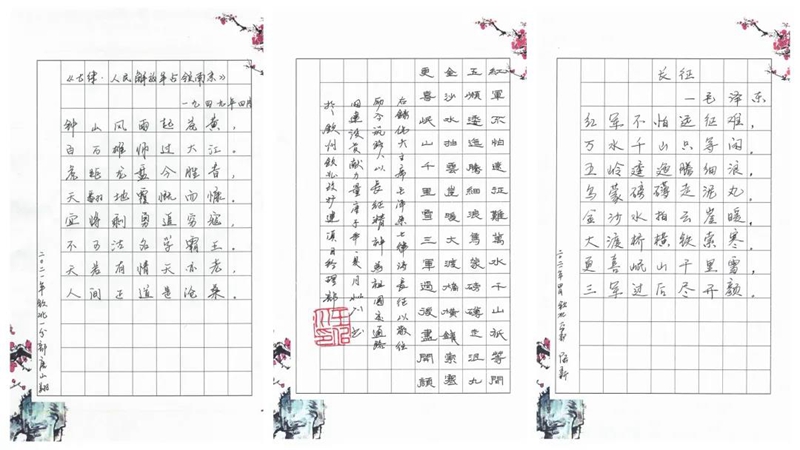 《七律·人民解放军占领南京》
一九四九年四月
钟山风雨起苍黄，
百万雄师过大江。
虎踞龙盘今胜昔，
天翻地覆慨而慷。
宜将剩勇追穷寇，
不可沽名学霸王。
天若有情天亦老，
人间正道是沧桑。
二〇二一年钦北一分部
紅軍不怕遠征難萬水千山祇等閒
五嶺逶迤騰細浪烏蒙磅礴走泥丸
金沙水拍雲崖暖大渡橋橫鐵索寒
更喜岷山千里雪三軍過後盡開顏
右錄偉大主席毛澤東七律詩長征以敬往
勵今筑路人以長征精神為祖國交通路
长征
—毛泽东
红军不怕远征难，
万水千山只等闲。
五岭逶迤腾细浪，
乌蒙磅礴走泥丸。
金沙水拍云崖暖，
大渡桥横铁索寒。
更喜岷山千里雪，
三军过后尽开颜。